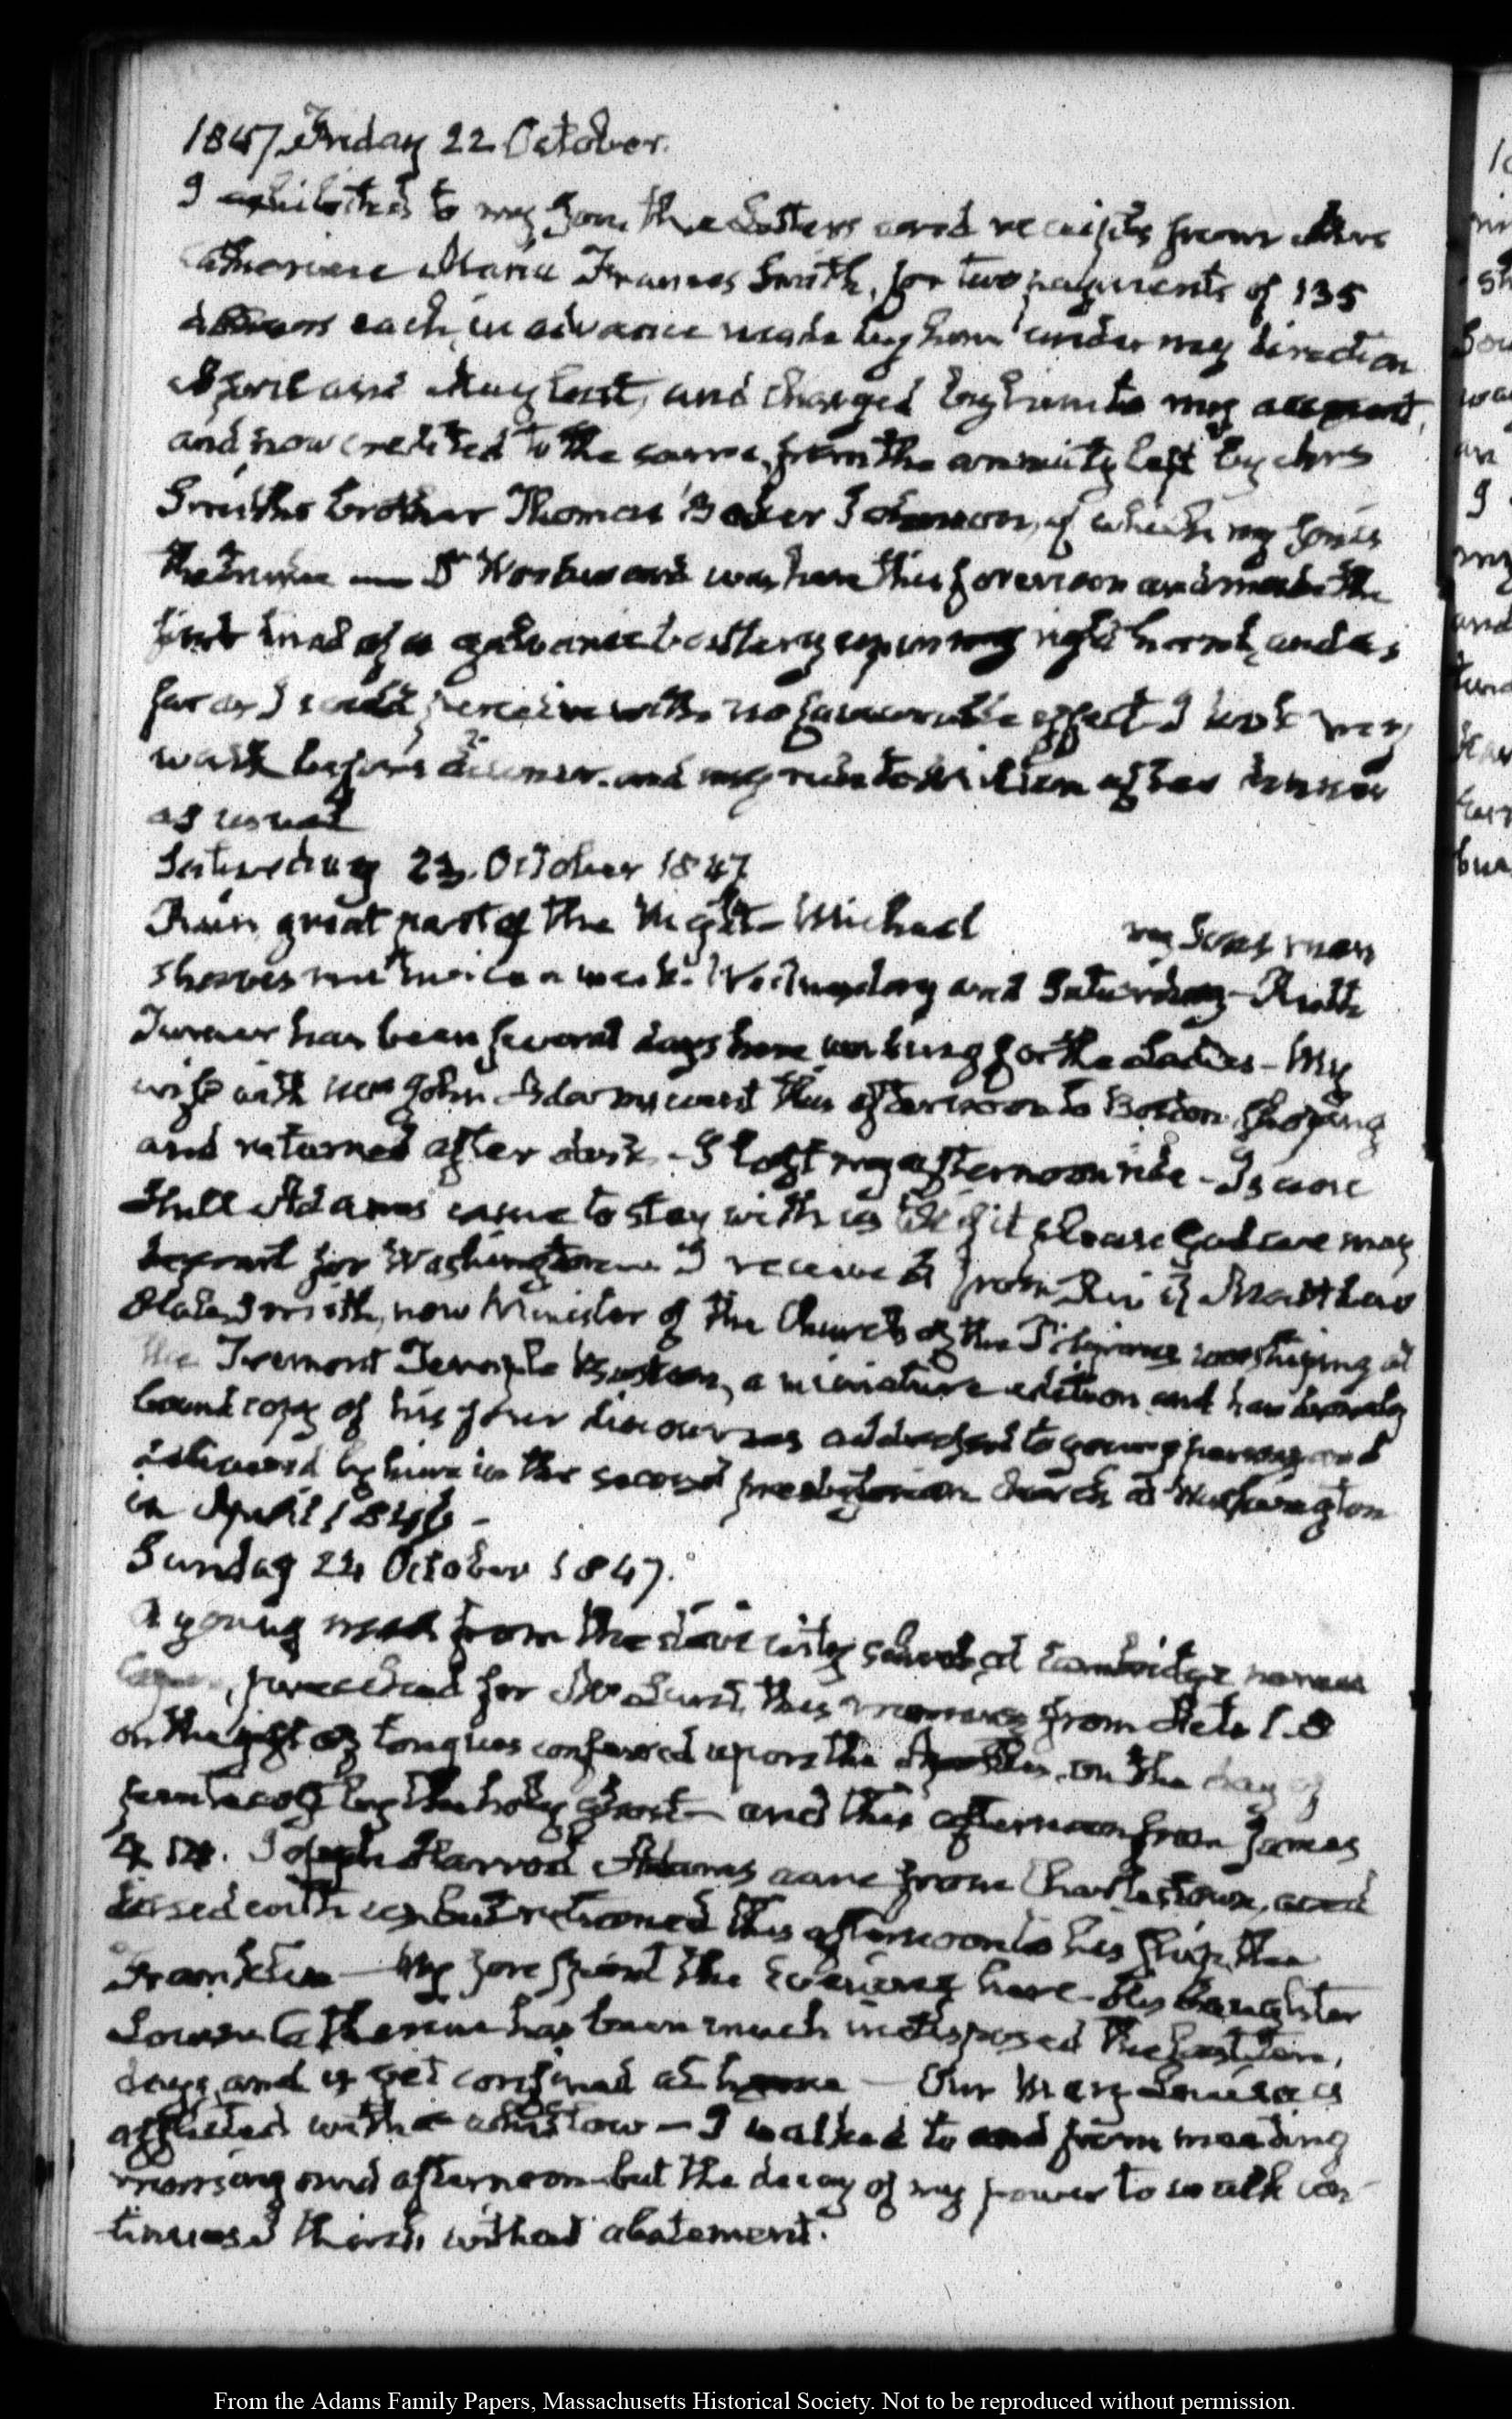 1847 Friday 22 October.
I exhibited to my Son, the Letters and receipts from Mrs
Catharine Maria Frances Smith, for two payments of 135
dollars each, in advance made by him under my direction
April and May last, and charged by him to my account,
and now credited to the same, from the annuity left by Mrs
Smith's brother Thomas Baker Johnson, of which my Son is
the Trustee — Dr Woodward was here this forenoon and made the
first trial of a galvanic battery upon my right hand, and as
far as I could perceive with no favourable effect I took my
walk before dinner. and my ride to after dinner
as usual
Saturday 23. October 1847
Rain great part of the Night — Michael my Son's man
shaves me twice a week. Wednesday and Saturday — Ruth
Turner has been several days here working for the Ladies — My
wife with Mrs John Adams went this afternoon to Boston, shopping
and returned after dark — I lost my afternoon ride — Isaac
Hull Adams came to stay with us till if it please God we may
depart for Washington I received from Revd Matthew
Hale Smith, now Minister of the Church of the Pilgrims worshiping at
the Tremont Temple Boston, a miniature edition and handsomely
bound copy of his four discourses addressed to young persons and
delivered by him in the second presbyterian Church at Washington
in April 1846 —
Sunday 24 October 1847.
A young man from the divinity school at Cambridge named
, preached for Mr Lunt, this morning from Acts 1. 8
on the gift of tongues conferred upon the Apostles, on the day of
pentecost by the holy Ghost — and this afternoon from James
4. 14. Joseph Harrod Adams came from Charlestown, and
dined with us, but returned this afternoon to his ship, the
Franklin — My Son spent the evening here — His daughter
Louisa Catherine has been much indisposed the last ten
days, and is yet confined at home — Our Mary Louisa is
afflicted with a — I walked to and from meeting
morning and afternoon but the decay of my power to walk con-
tinues I think without abatement.
From the Adams Family Papers, Massachusetts Historical Society. Not to be reproduced without permission.